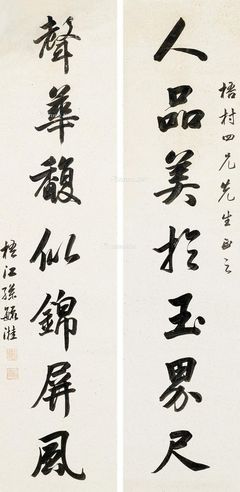 悟村四兄先生正之
人品美於玉界尺
聲華馥似錦屏風
梧江孫毓溎